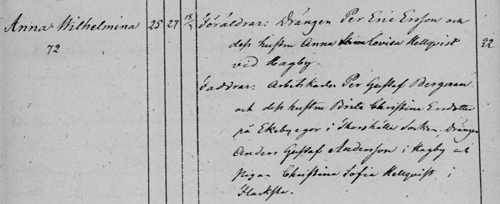 Anna Wilhelmina 25 27 Föräldrar: Drängen Per Eric Ersson och
72 dess hustru Anna Lovisa Hellqvist 22
vid Hagby.
Faddrar: Arbetskarlen Per Gustaf Bergman
och dess hustru Brita Christina Ersdotter
på Ekeby egor i Thorshälla Socken. Drängen
Anders Gustaf Andersson i Hagby och
Pigan Christina Sofia Hellqvist i